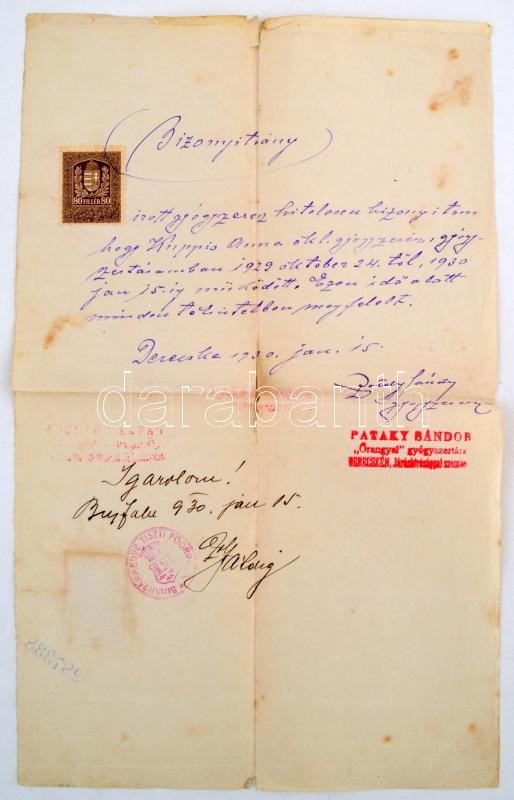 Bizonyitvány
80 FILLÉR 80
irott gyógyszerész hitelesen bizonyitom
hogy Kuppis Anna okl. gyógyszerész, gyógy-
szertáramban 1929 oktober 24. től, 1930
jan 15-ig működött. Ezen idő alatt
minden tekintetben megfelelt.
Derecske 1930. jan. 15.
Pataky Sándor
gyógyszerész
darabanth
PATAKY SÁNDOR
„Őrangyal" gyógyszertára
DERECSKÉN, Járásbirósággal szemben
Igazolom!
930. jan 15.
BIHARVÁRMEGYE TISZTI FŐORVOSA